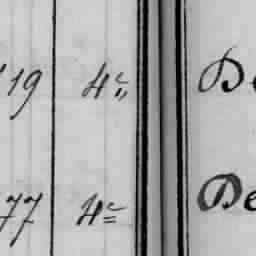 19 4 c De
77 4 c De